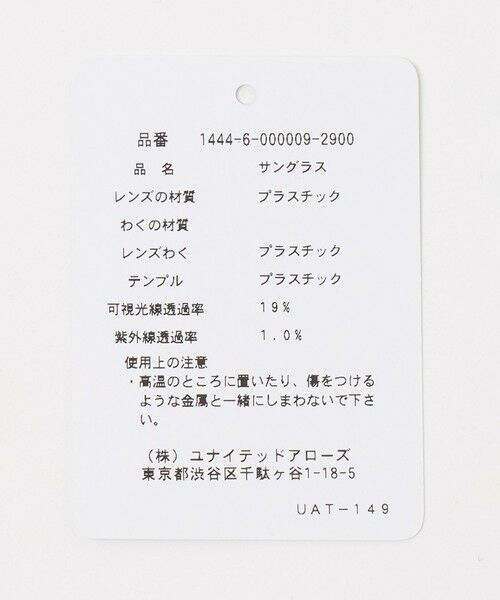 品番 1444-6-000009-2900
品 名 サングラス
レンズの材質 プラスチック
わくの材質
レンズわく プラスチック
テンプル プラスチック
可視光線透過率 19%
紫外線透過率 1.0%
使用上の注意
・高温のところに置いたり、傷をつける
ような金属と一緒にしまわないで下さ
い。
(株) ユナイテッドアローズ
東京都渋谷区千駄ヶ谷1-18-5
UAT-149